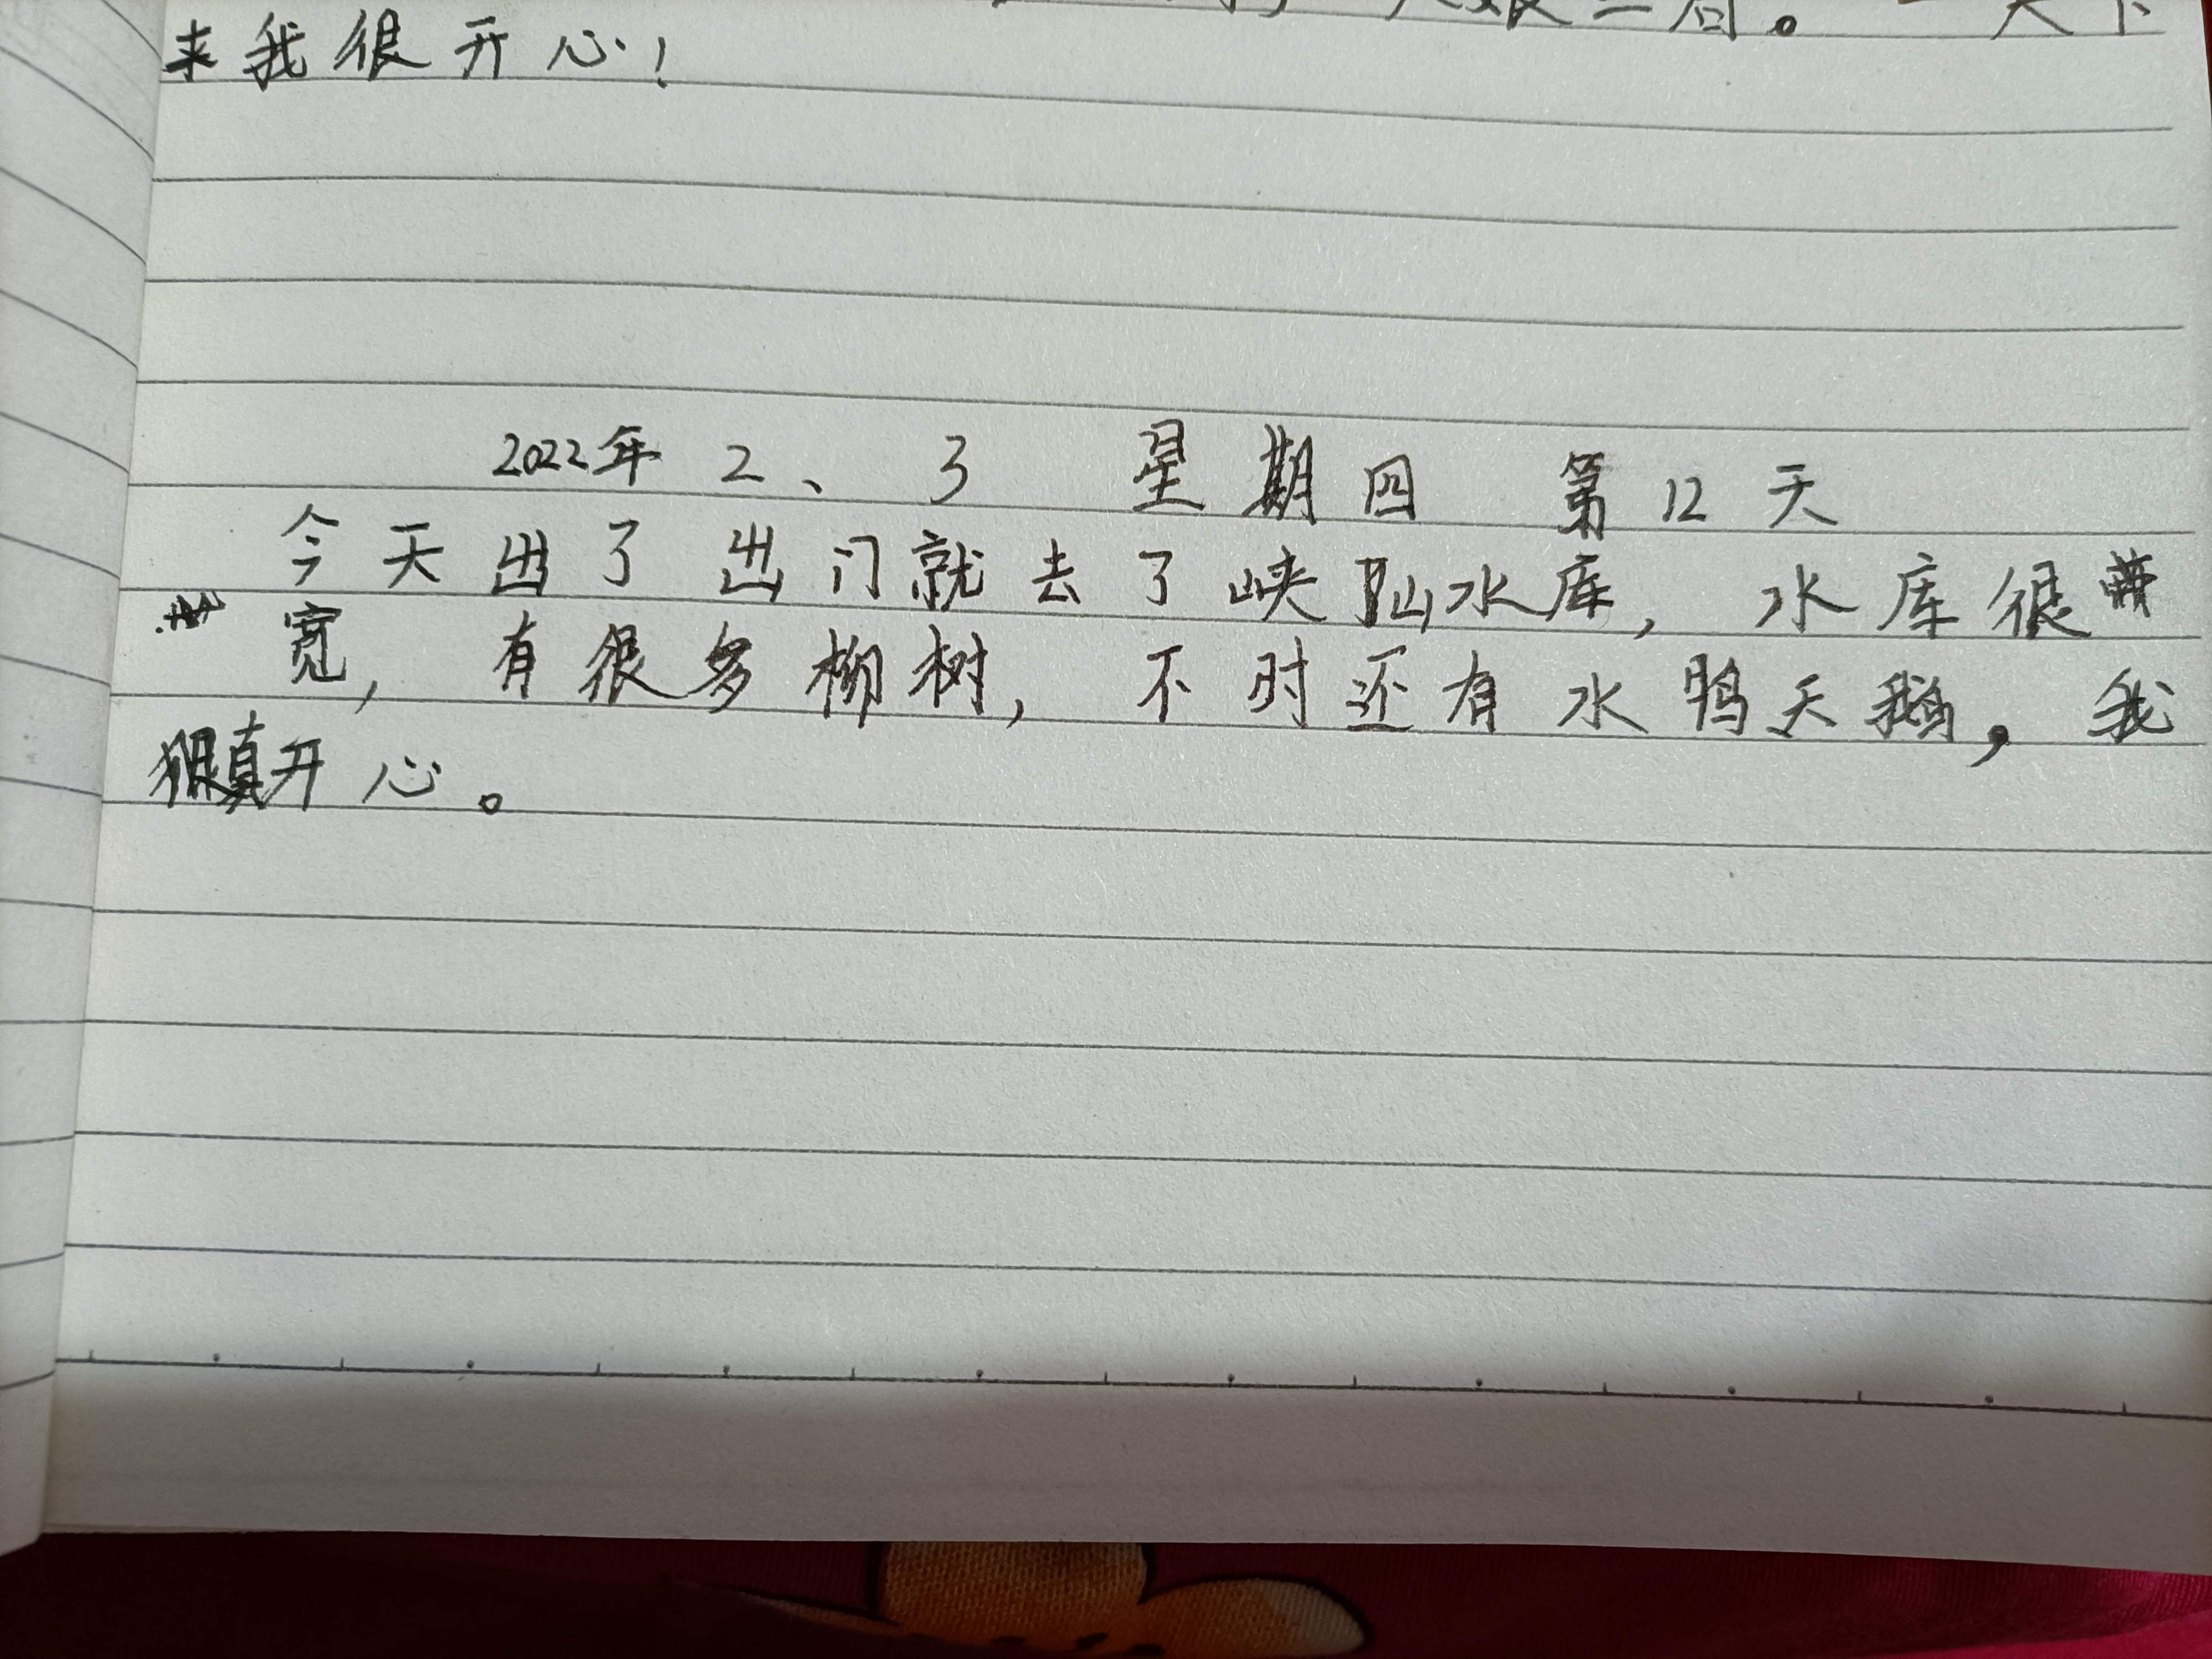 一天下
来我很开心!
2022年 2、 3 星期四 第12天
今天出了出门就去了峡山水库, 水库很
宽, 有很多柳树, 不时还有水鸭天鹅, 我
真开心。